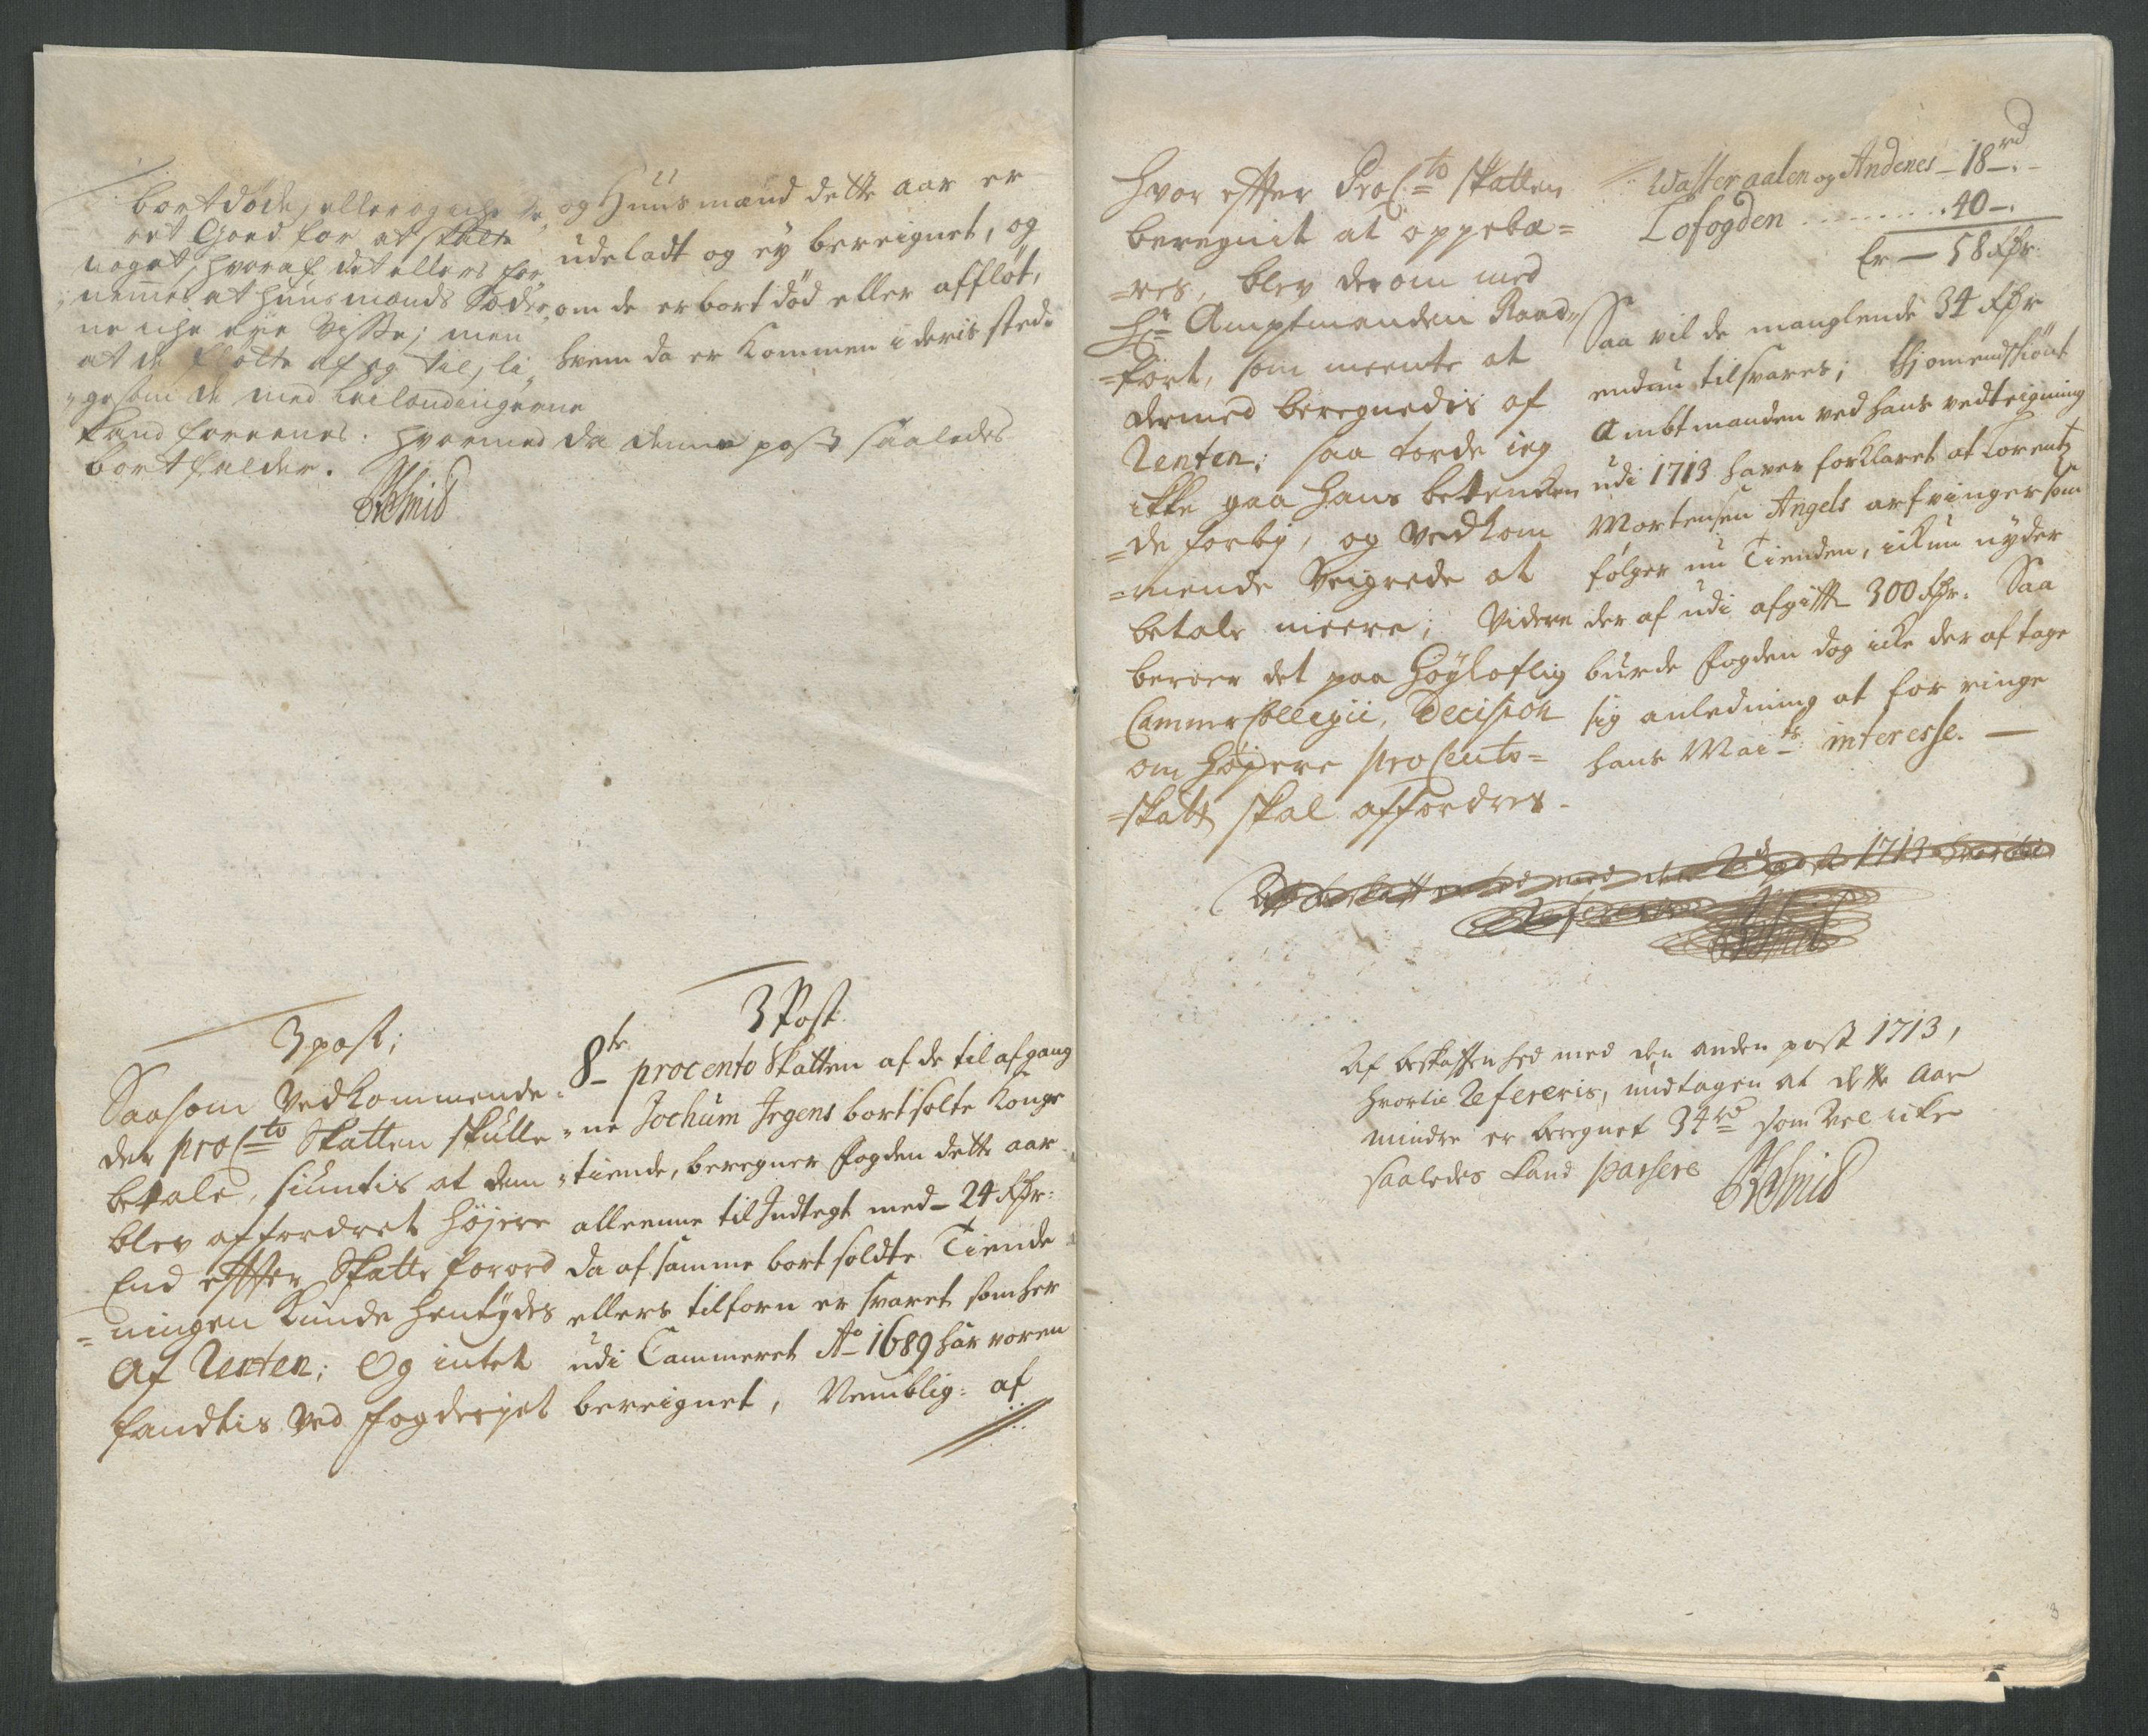 bortdøde, eller og iche
ret Goed for at skatte
noget, hvoraf det ellers for
nemmes at huusmænds Sæder
ne iche ere visse; men
at de flötte af og til, li
gesom de med Leilændingerne
kand foreenes: hvormed da denne post saaledes
bortfalder.
og Huusmænd dette aar er
udeladt og ey bereignet, og
om de er bort död eller afflöt,
hvem da er kommen i deris sted.
3 post;
Saasom vedkommende
der pro C:to Skatten skulle
betale, siuntis at dem
blev affordret höjere
End effter Skatte forord
=ningen kunde hentydes
Af Renten; Og intet
fandtis ved fogderjet
3 Post.
8te procento Skatten af de til afgang
ne Jochum Jrgens bortsolte Konge
tiende, beregner fogden dette aar
alleenne til Indtegt med - 24 Rdr:
da af samme bort soldte Tiende
ellers tilforn er svaret som her
udi Cammeret Ao 1689 har voren
bereignet, Nemblig: af
hvor effter Pro C:to skatten
beregnit at oppebæ=
=res, blev derom med
Hr Amptmanden Raad
=fört, som meente at
dermed beregnedis af
Renten; saa torde ieg
ikke gaa hans betenken
=de forbj, og vedkom
=mende Veigrede at
betale meere; Videre
beroer det paa Höyloflig
Cammer Collegii, Decision
om höjere pro Cento=
=skatt skal affordres.
Wasteraalen og Andenes - 18rd
Lofogden 40 -
Er - 58 Rdr.
Saa vil de manglende 34 Rdr
endnu tilsvares; thj omendskiönt
Ambtmanden ved hans vedteigning
udi 1713 haver forklaret at Lorentz
Mortensen Angels arfvinger som
fölger nu Tienden, ickun nyder
der af udi afgifft 300 Rdr. Saa
burde fogden dog icke der af tage
sig anledning at forringe
hans Maits interesse. -
Af beskaffenhed med den anden post 1713,
hvortil Refereris, undtagen at dette aar
mindre er beregnet 34 rd som vel icke
saaledes kand passere